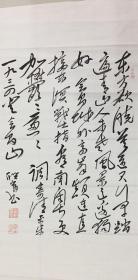 东方欲晓莫道君行早踏
遍青山人未老风景这边独
好会昌城外高峰颠连直
接东溟战士指看南粤更
加郁郁葱葱 调寄清平乐
一九三四 会昌山